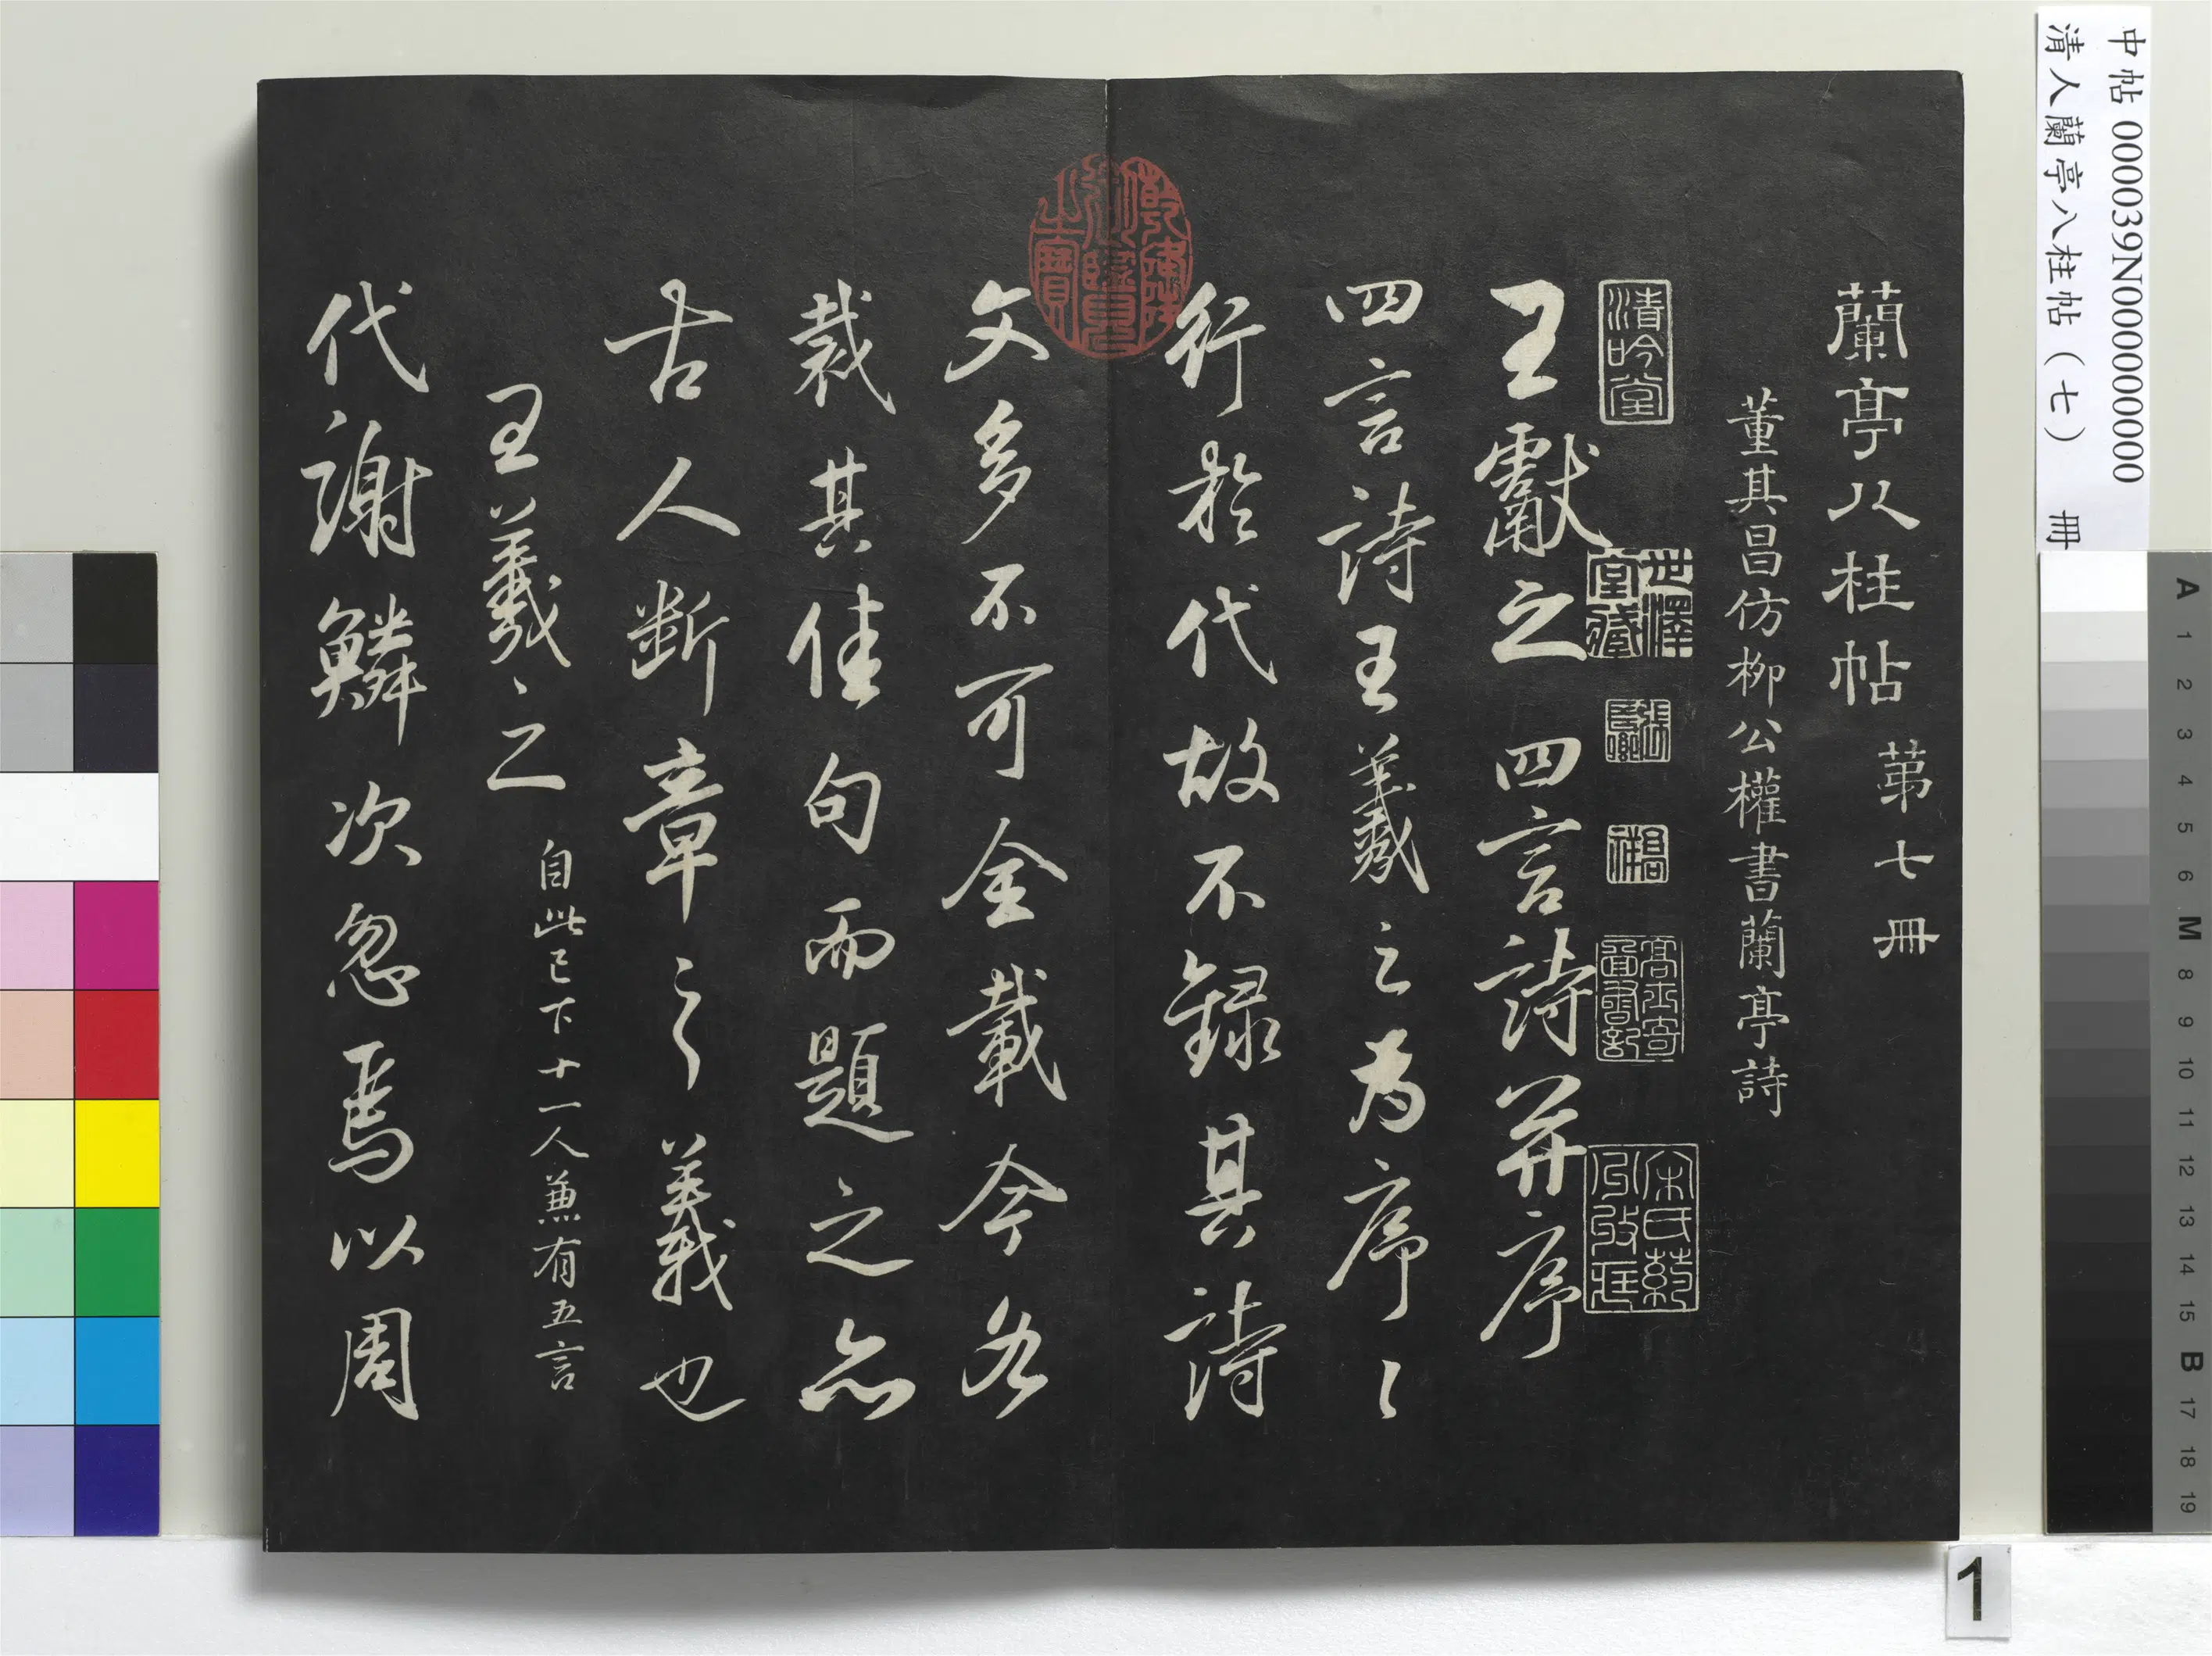 中帖 000039N000000000
清人蘭亭八柱帖（七） 冊
蘭亭八柱帖 第七冊
董其昌仿柳公權書蘭亭詩
清吟堂
世澤堂藏
王獻之四言詩并序
四言詩王羲之為序〻
行於代故不録其詩
乾隆御覽之寶
文多不可全載今各
裁其佳句而題之亦
古人斷章之義也
王羲之 自此已下十一人兼有五言
代謝鱗次忽焉以周
A 1 2 3 4 5 6 M 8 9 10 11 12 13 14 15 B 17 18 19
1